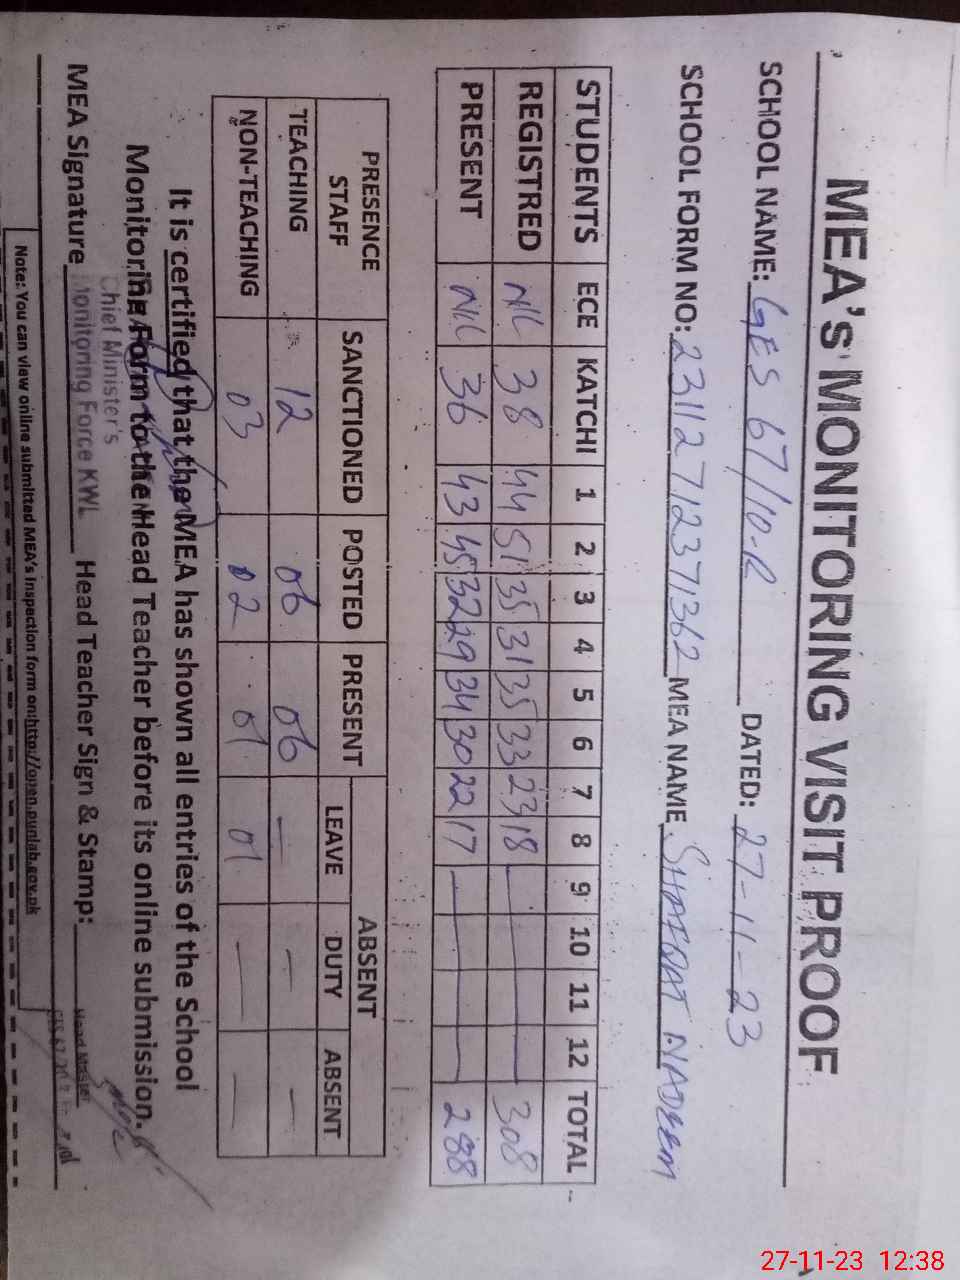 MEA's MONITORING VISIT PROOF
SCHOOL NAME: GES 67/10-R DATED: 27-11-23
SCHOOL FORM NO: 23112712371362 MEA NAME SHAFQAT NADEEM
STUDENTS ECE KATCHI 1 2 3 4 5 6 7 8 9 10 11 12 TOTAL
REGISTRED NIL 38 44 51 35 31 35 33 23 18 — 308
PRESENT NIL 36 43 45 32 29 34 30 22 17 — 288
PRESENCE STAFF SANCTIONED POSTED PRESENT ABSENT
LEAVE DUTY ABSENT
TEACHING 12 06 06 — — —
NON-TEACHING 03 02 01 01 — —
It is certified that the MEA has shown all entries of the School
Monitoring Form to the Head Teacher before its online submission.
Chief Minister's
Monitoring Force KWL
MEA Signature Head Teacher Sign & Stamp:
Head Master
Note: You can view online submitted MEA's Inspection form on:http://open.punjab.gov.pk
27-11-23 12:38